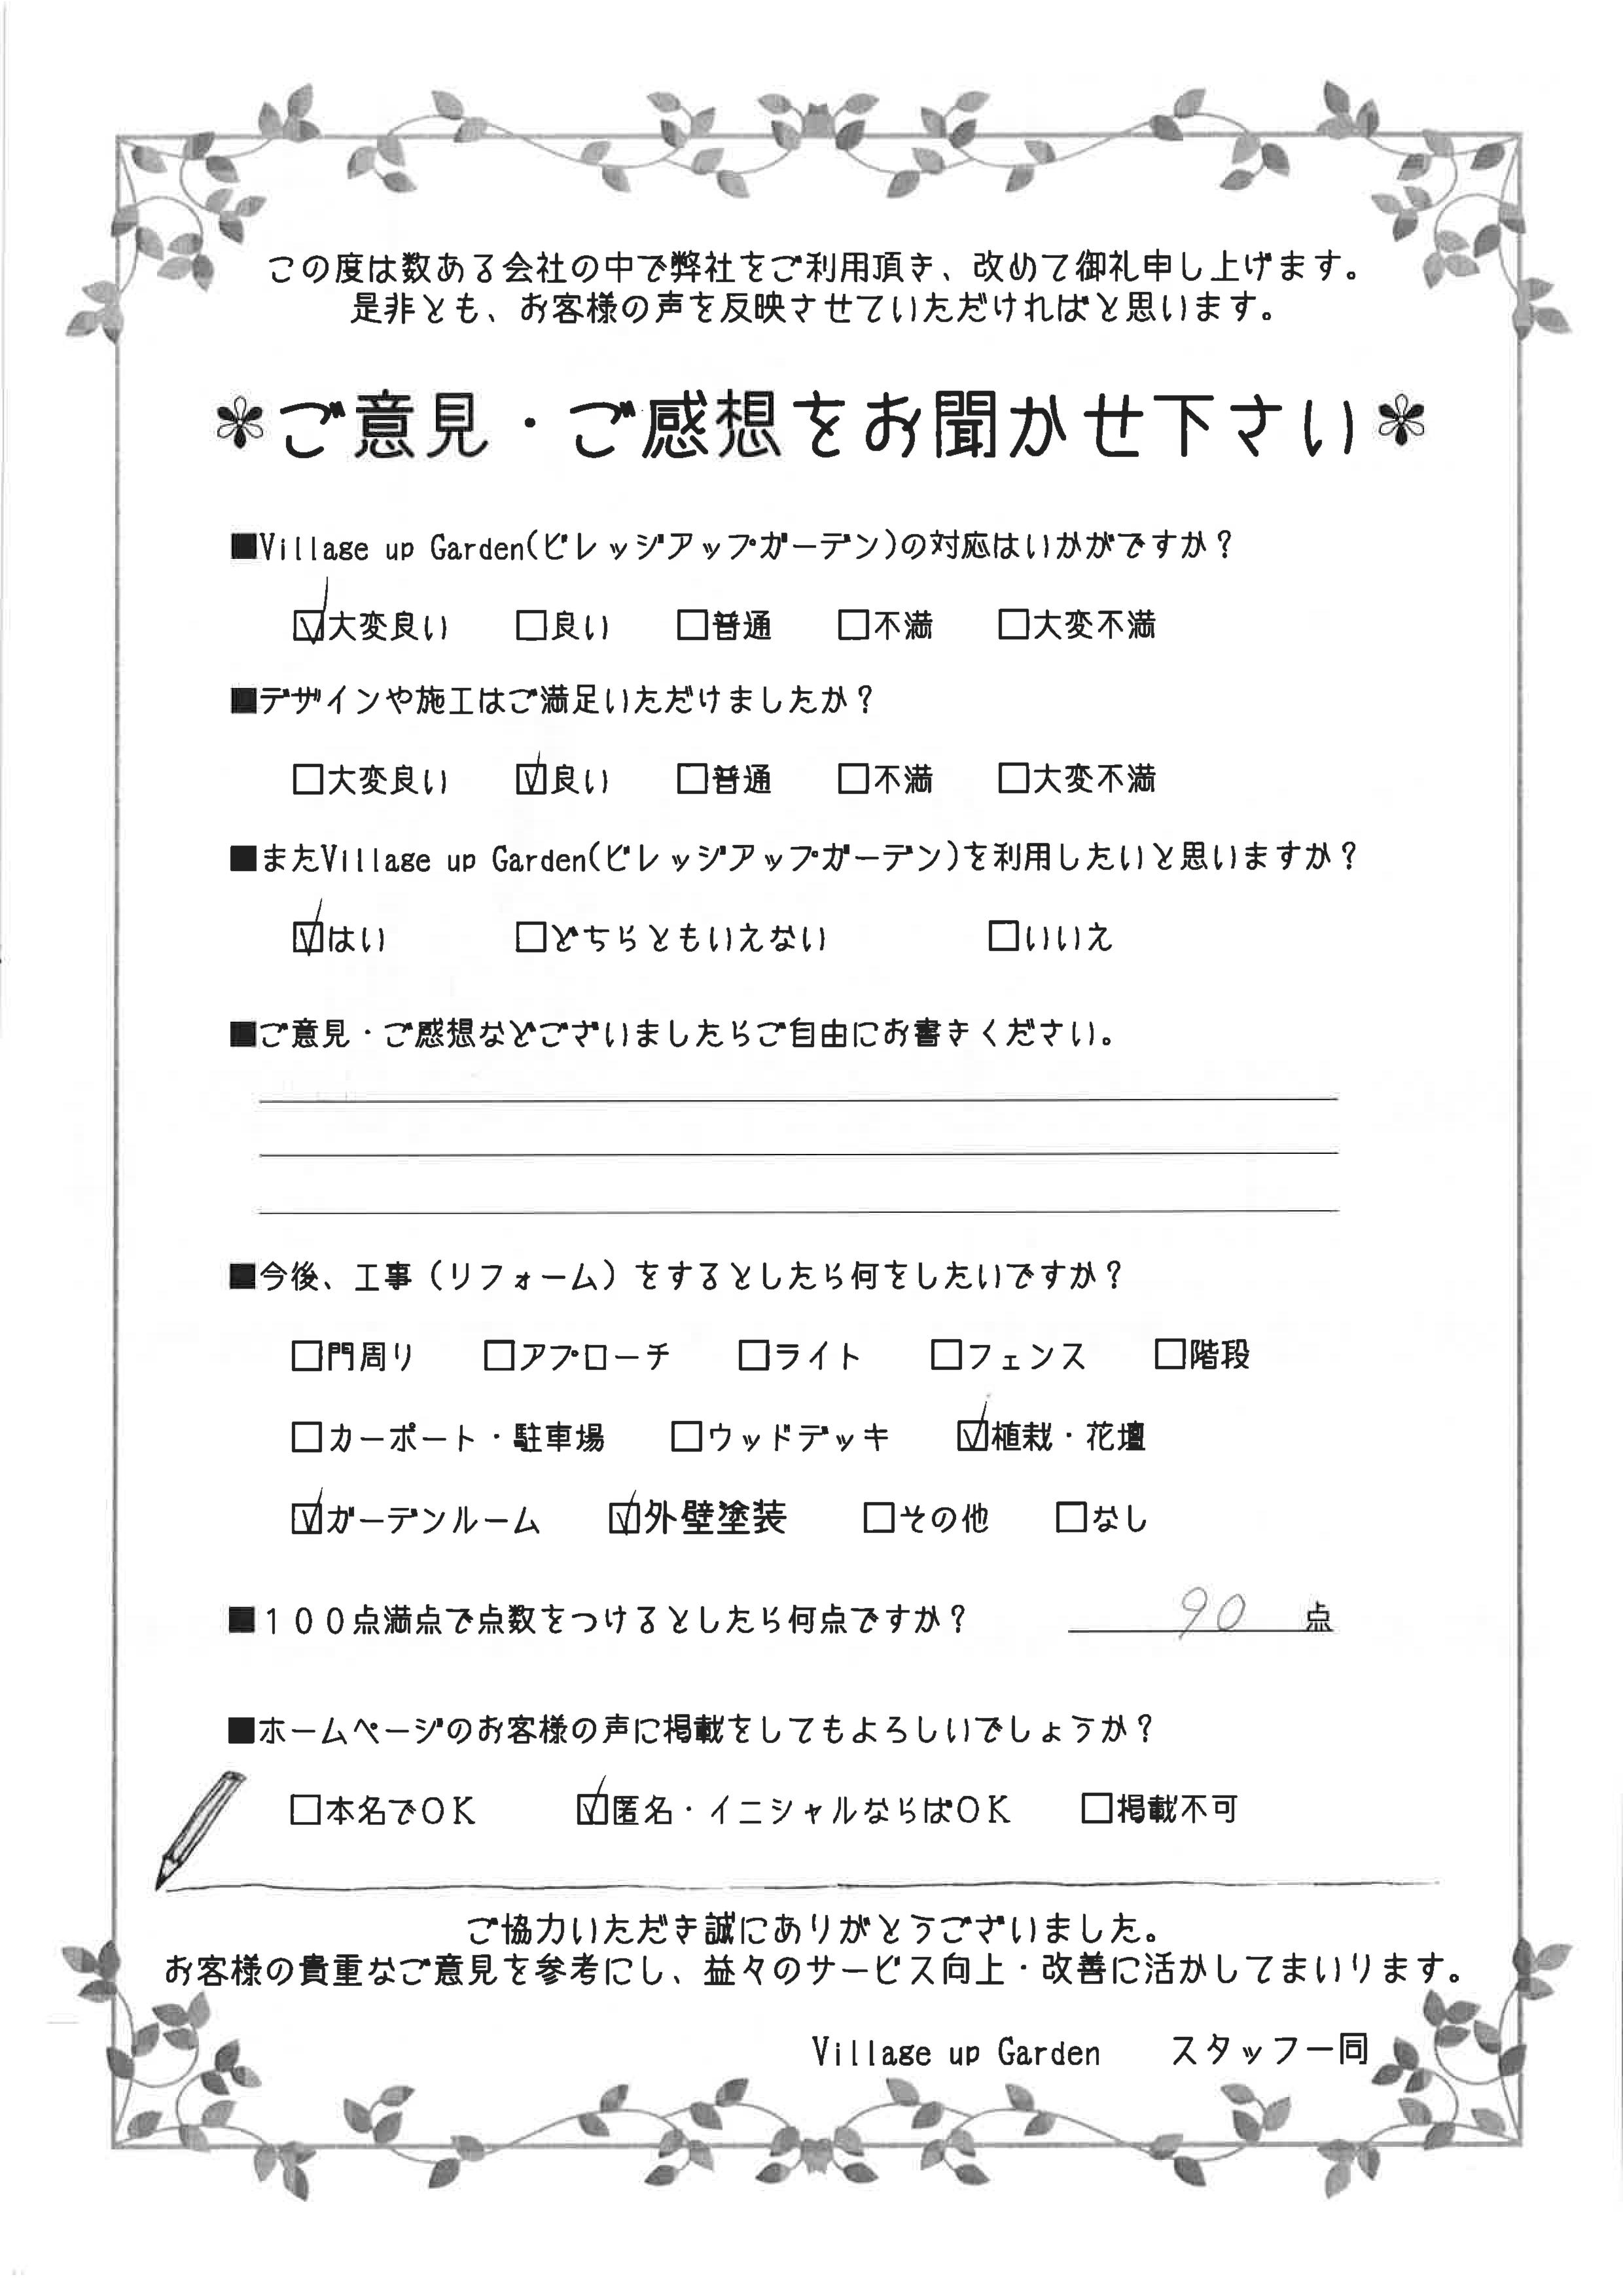 この度は数ある会社の中で弊社をご利用頂き、改めて御礼申し上げます。
是非とも、お客様の声を反映させていただければと思います。
＊ご意見・ご感想をお聞かせ下さい＊
■Village up Garden(ビレッジアップガーデン)の対応はいかがですか？
☑大変良い　□良い　□普通　□不満　□大変不満
■デザインや施工はご満足いただけましたか？
□大変良い　☑良い　□普通　□不満　□大変不満
■またVillage up Garden(ビレッジアップガーデン)を利用したいと思いますか？
☑はい　□どちらともいえない　□いいえ
■ご意見・ご感想などございましたらご自由にお書きください。
■今後、工事（リフォーム）をするとしたら何をしたいですか？
□門周り　□アプローチ　□ライト　□フェンス　□階段
□カーポート・駐車場　□ウッドデッキ　☑植栽・花壇
☑ガーデンルーム　☑外壁塗装　□その他　□なし
■１００点満点で点数をつけるとしたら何点ですか？　90　点
■ホームページのお客様の声に掲載をしてもよろしいでしょうか？
□本名でＯＫ　☑匿名・イニシャルならばＯＫ　□掲載不可
ご協力いただき誠にありがとうございました。
お客様の貴重なご意見を参考にし、益々のサービス向上・改善に活かしてまいります。
Village up Garden　スタッフ一同